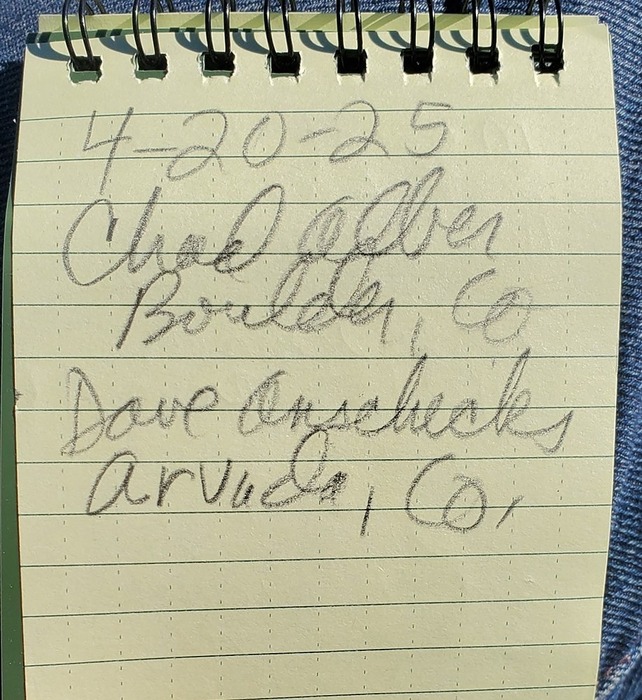 4-20-25
Chad
Boulder, Co
Dave
Arvada, Co,